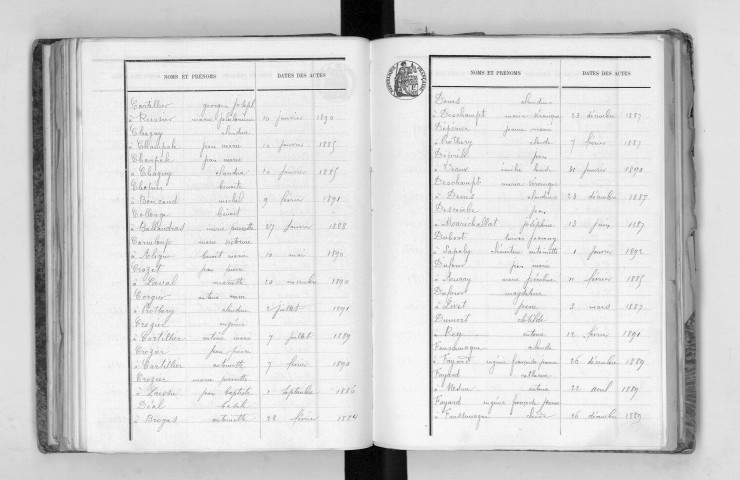 NOMS ET PRÉNOMS DATES DES ACTES
Cartillier georges joseph
à Russier marie philomène 10 janvier 1890
Chagny claudine
à Champale jean marie 10 janvier 1885
Champale jean marie
à Chagny claudine 10 janvier 1885
Chopin benoite
à Boucaud michel 9 février 1891
Collonge benoit
à Ballandras marie pierrette 27 janvier 1888
Corneloup marie victorine
à benoit marie 10 mai 1890
Crozet jean pierre
à Laval mariette 20 novembre 1890
antoine marie
à Prothery claudine 2 juillet 1891
Crozier eugénie
à Cartillier antoine marie 7 juillet 1889
Crozier jean pierre
à Cartillier antoinette 7 février 1890
Crozier marie pierrette
à Laroche jean baptiste 1 septembre 1886
Déal
à Broyes antoinette 28 février 1884
RÉPUBLIQUE FRANÇAISE
NOMS ET PRÉNOMS DATES DES ACTES
Denis claudius
à Deschampt marie véronique 23 décembre 1887
Dépierre jeanne marie
à Prothery claude 7 février 1887
jean
à Vraux émilie 30 janvier 1890
Deschampt marie véronique
à Denis claudius 23 décembre 1887
Descombe jean
à Maréchallat joséphine 13 juin 1887
Dubost
à claudine antoinette 1 janvier 1892
Dufour jean marie
à marie 11 février 1885
Dufour magdeleine
à Livet pierre 3 mars 1887
Dumort clotilde
à Rey antoine 12 février 1891
claude
à Fayard eugénie françoise jeanne 26 décembre 1889
Fayard catherine
à antoine 22 avril 1889
Fayard eugénie françoise jeanne
à claude 26 décembre 1889